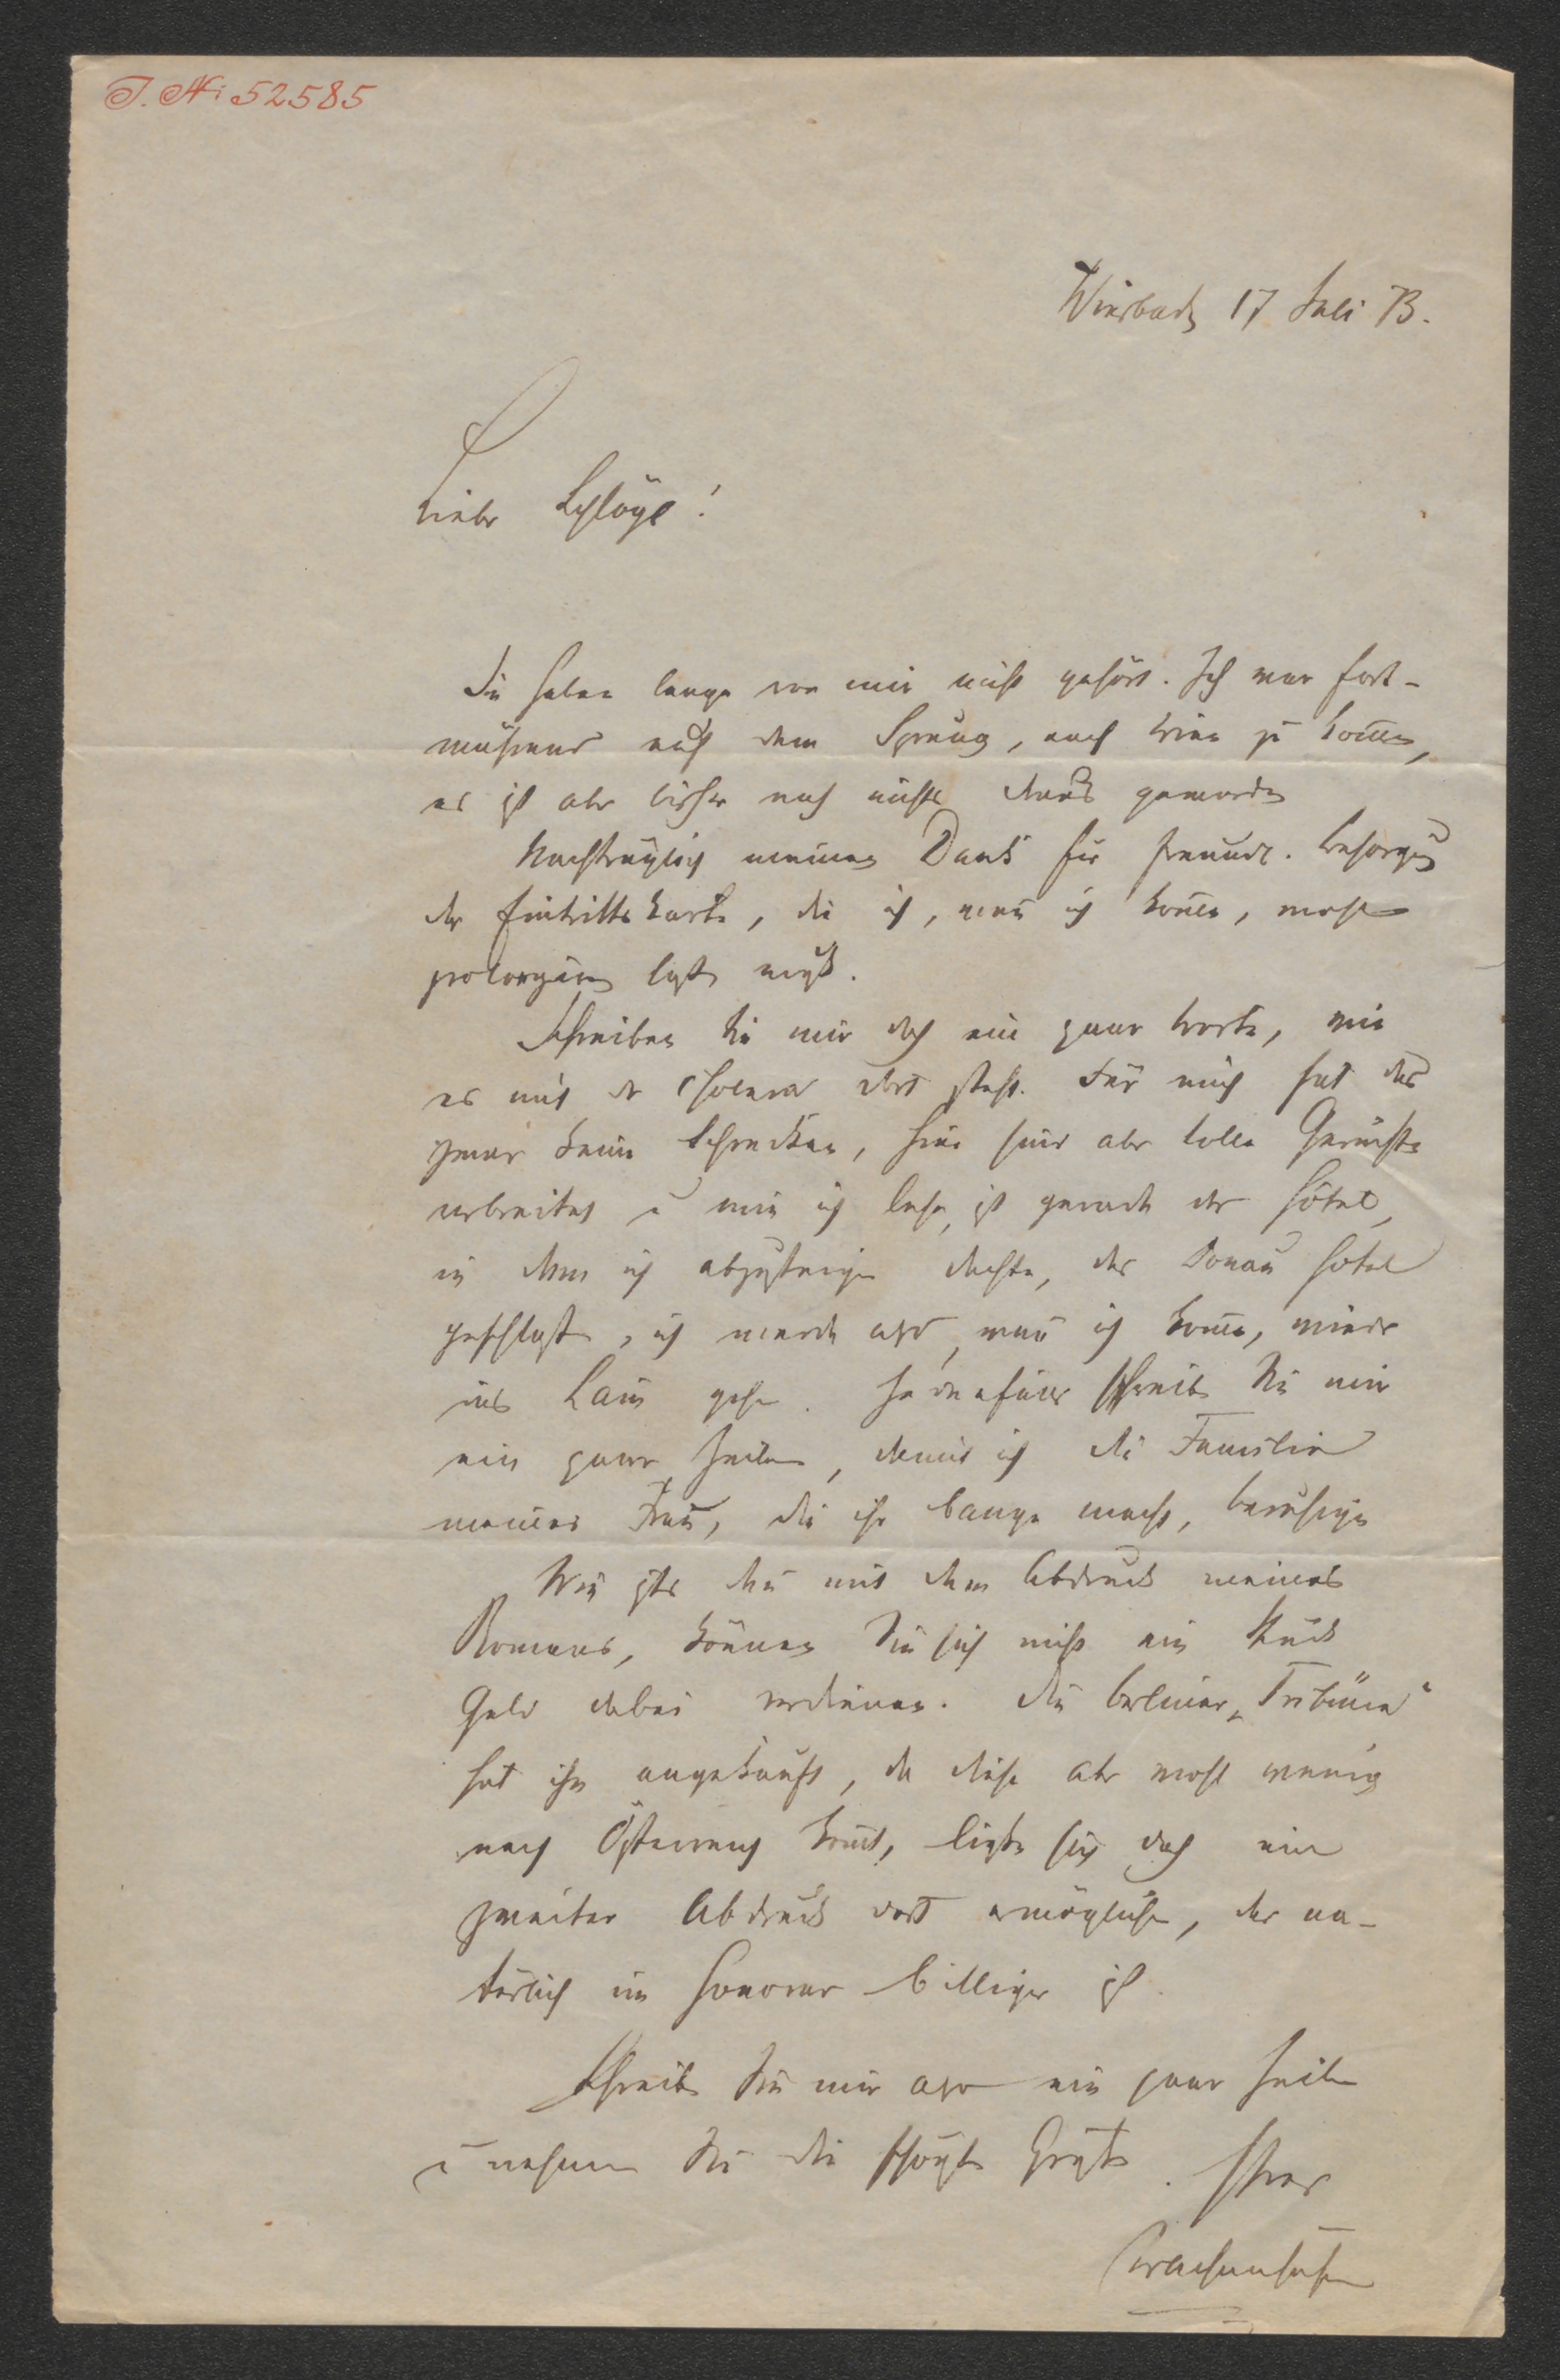 I. N. 52585
Wiesbaden 17 Juli 73.
Lieber Schlögl!
Sie haben lange von mir nicht gehört. Ich war fort-
während auf dem Sprung, nach Wien zu kommen,
es ist aber bisher noch nichts daraus geworden
Nachträglich meinen Dank für freundl. Besorgung
der Eintrittskarte, die ich, wenn ich komme, wohl
prolongiren lassen muß.
Schreiben Sie mir doch ein paar Worte, wie
es mit der Cholera dort steht. Für mich hat das
zwar keine Schrecken, hier sind aber tolle Gerüchte
verbreitet u wie ich lese, ist gerade der Hôtel,
in dem ich abzusteigen dachte, das Donau Hotel
geschlossen, ich werde also, wenn ich komme, wieder
ins Lam gehen. Jedenfalls schreiben Sie mir
ein paar Zeilen, damit ich die Familie
meiner Frau, die ihr bange macht, beruhige
Wie ists denn mit dem Abdruck meines
Romans, können Sie sich nicht ein Stück
Geld dabei verdienen. Die Berliner „Tribüne“
hat ihn angekauft, da diese aber wohl wenig
nach Österreich kommt, ließe sich doch ein
zweiter Abdruck dort ermöglichen, der na-
türlich im Honorar billiger ist.
Schreiben Sie mir also ein paar Zeilen
u nehmen Sie die schönsten Grüße. Ihres
Wachenhusen